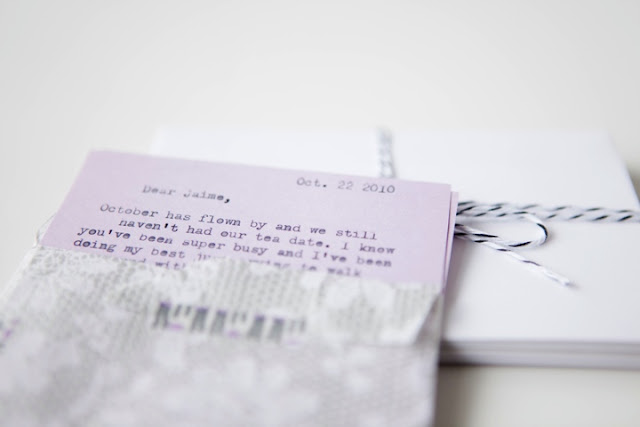 Oct. 22 2010
Dear Jaime,
October has flown by and we still
haven't had our tea date. I know
you've been super busy and I've been
doing my best to walk